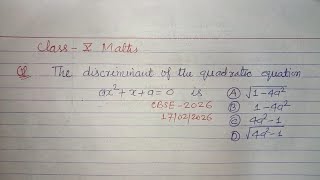 Class - X Maths
Q The discriminant of the quadratic equation
ax² + x + a = 0 is
CBSE - 2026
17/02/2026
(A) √1-4a²
(B) 1-4a²
(C) 4a²-1
(D) √4a²-1